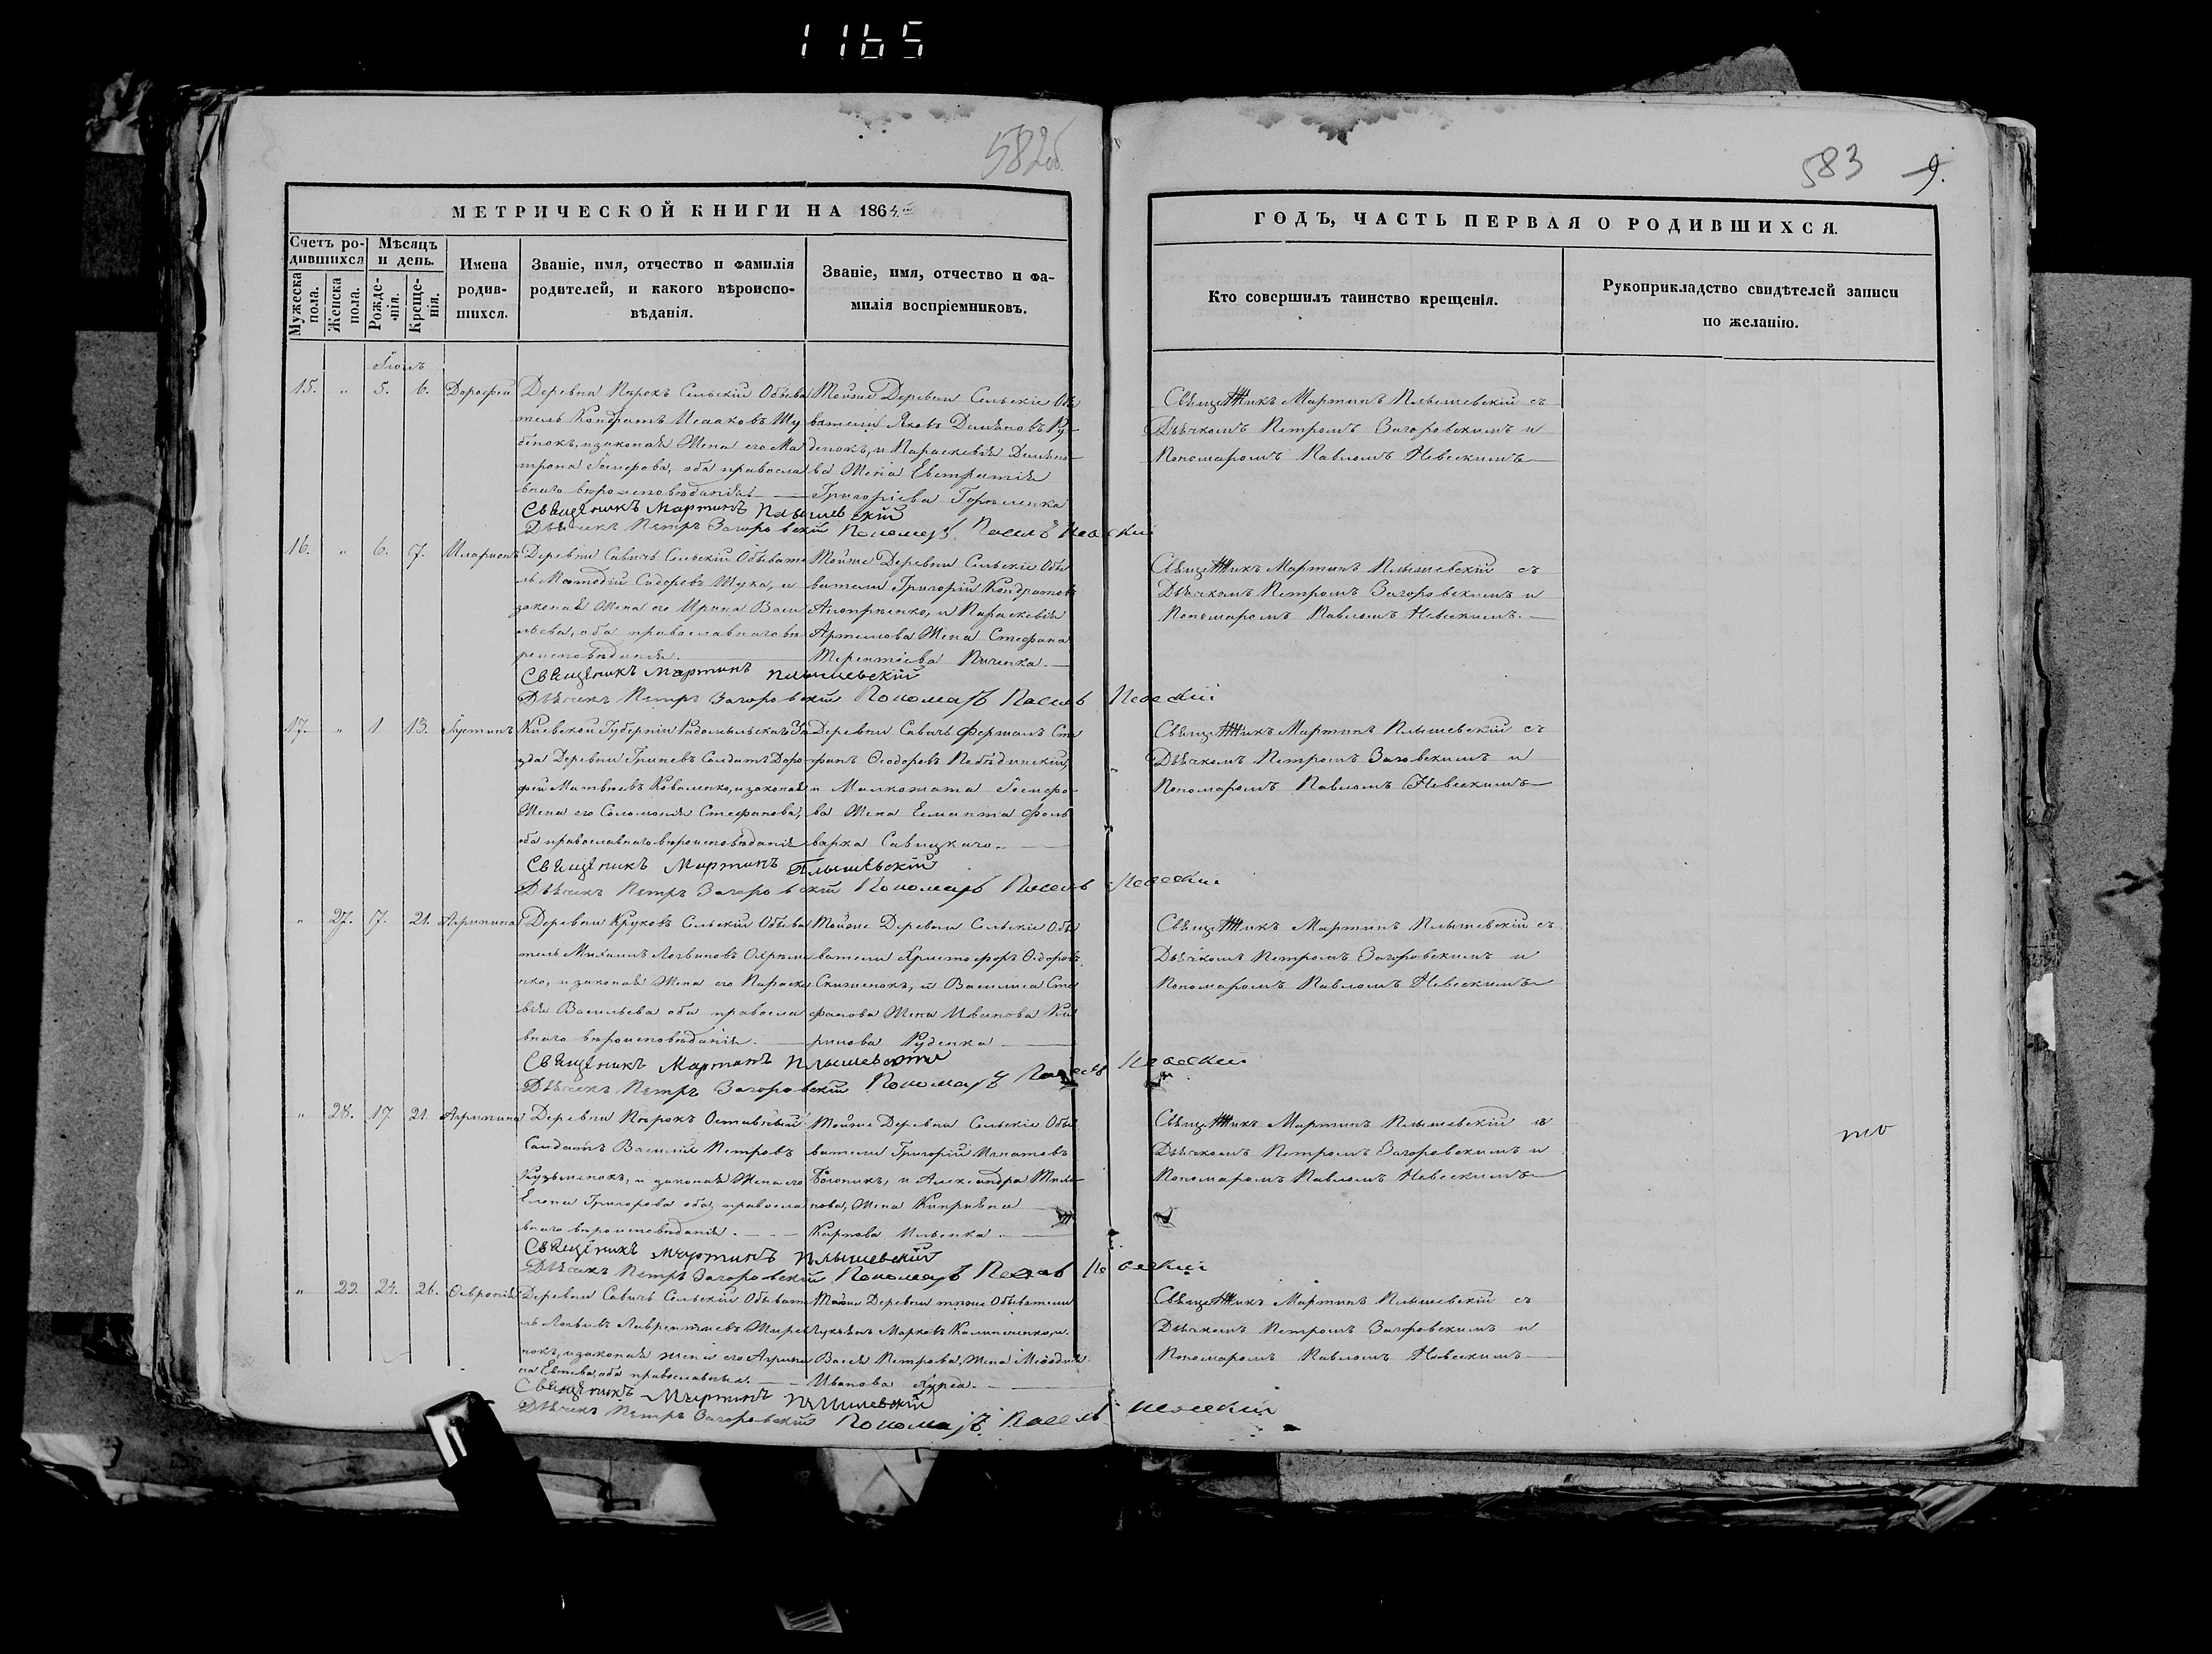 1165
582об.
МЕТРИЧЕСКОЙ КНИГИ НА 1864
Счетъ ро-
дившихся
Мѣсяцъ
и день.
Мужеска
пола.
Женска
пола.
Рожде-
нія.
Креще-
нія.
Имена
родив-
шихся.
Званіе, имя, отчество и фамилія
родителей, и какого вѣроиспо-
вѣданія.
Званіе, имя, отчество и фа-
милія воспріемниковъ.
583 9.
ГОДЪ, ЧАСТЬ ПЕРВАЯ О РОДИВШИХСЯ.
Кто совершилъ таинство крещенія.
Рукоприкладство свидѣтелей записи
по желанію.
Іюль
15. " 5. 6. Дорофей
Деревни Сельскій Обыва
тель Кондратъ Исааковъ
законная Жена его Ма
трона Іосифова, оба правосла
внаго вѣроисповѣданія
Тойже Деревни Сельскіе Обы
ватели Яковъ Демяновъ Ру-
денокъ, и Параскевія Демяно-
ва Жена Евстратія
Григоріева
Священникъ Мартинъ Плышевскій съ
Дьячкомъ Петромъ Загоровскимъ и
Пономаромъ Павломъ Невескимъ
Священникъ Мартинъ Плышевскій
Дьячекъ Петръ Загоровскій Пономарь Павелъ Невескій
16. " 6. 7. Иларіонъ
Деревни Савичъ Сельскій Обывате
ль Меѳодій Сидоровъ Щука, и
законная Жена его Ирина Васи
льева, оба православнаго вѣ
роисповѣданія.
Тойже Деревни Сельскіе Обы
ватели Григорій Кондратовъ
и Параскевія
Артемова Жена Стефана
Терентіева
Священникъ Мартинъ Плышевскій съ
Дьячкомъ Петромъ Загоровскимъ и
Пономаромъ Павломъ Невескимъ.
Священникъ Мартинъ Плышевскій
Дьячекъ Петръ Загоровскій Пономарь Павелъ Невескій
17. " 1 13. Іустинъ
Кіевской Губерніи Радомыльскаго Уѣ
зда Деревни Гриневъ Солдатъ Доро-
фей Матвѣевъ Коваленко, и законная
Жена его Соломонія Стефанова,
оба православнаго вѣроисповѣданія
Деревни Савичъ Фершалъ Сте
фанъ Ѳеодоровъ
и Іосифо-
ва Жена Фоль
варка Савицкаго.
Священникъ Мартинъ Плышевскій съ
Дьячкомъ Петромъ Заговскимъ и
Пономаромъ Павломъ Невескимъ
Священникъ Мартинъ Плышевскій
Дьячекъ Петръ Загоровскій Пономарь Павелъ Невескій
" 27. 17. 21. Агрипина
Деревни Круковъ Сельскій Обыва
тель Михаилъ Логвиновъ Охрѣме
нко, и законная Жена его Параске
вія Васильева оба правосла
внаго вѣроисповѣданія.
Тойже Деревни Сельскіе Обы
ватели Христофоръ
и Василиса Сте
фанова Жена Иванова Ки
рилова Руденка
Священникъ Мартинъ Плышевскій съ
Дьячкомъ Петромъ Загоровскимъ и
Пономаромъ Павломъ Невескимъ
Священникъ Мартинъ Плышевскій
Дьячекъ Петръ Загоровскій Пономарь Павелъ Невескій
" 28. 17. 21. Агрипина
Деревни Оставный
Солдатъ Василій Петровъ
Кузьменокъ, и законная Жена его
Елена Григорова оба правосла
внаго вѣроисповѣданія.
Тойже Деревни Сельскіе Обы
ватели Григорій
и Александра
нова, Жена Кипріяна
Карпова
Священникъ Мартинъ Плышевскій съ
Дьячкомъ Петромъ Загоровскимъ и
Пономаромъ Павломъ Невескимъ
Священникъ Мартинъ Плышевскій
Дьячекъ Петръ Загоровскій Пономарь Павелъ Невескій
" 29. 24. 26. Ѳевронія
Деревни Савичъ Сельскій Обывате
ль Логвинъ Лаврентіевъ
нокъ, и законная жена его Агрипи
на оба православныя.
Тойже Деревни тоже Обыватели
Лукьянъ Марковъ и
Васса Петрова, Жена Меѳодія
Иванова
Священникъ Мартинъ Плышевскій съ
Дьячкомъ Петромъ Загоровскимъ и
Пономаромъ Павломъ Невескимъ
Священникъ Мартинъ Плышевскій
Дьячекъ Петръ Загоровскій Пономарь Павелъ Невескій